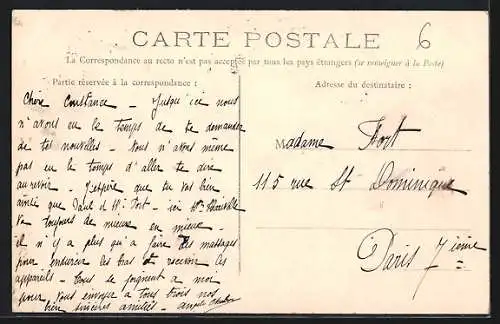 6
CARTE POSTALE
La Correspondance au recto n'est pas acceptée par tous les pays étrangers (se renseigner à la Poste)
Partie réservée à la correspondance :
Adresse du destinataire :
Chère Constance – Jusqu'ici nous
n'avons eu le temps de te demander
de tes nouvelles – Nous n'avons même
pas eu le temps d'aller te dire
au revoir – J'espère que tu vas bien
ainsi que Paul et Mr Fort – ici Mr
va toujours de mieux en mieux –
il n'y a plus qu'à faire des massages
pour endurcir les bras et recevoir les
appareils – Tous se joignent à moi
pour vous envoyer à tous trois nos
bien sincères amitiés –
Madame Fort
115 rue St Dominique
Paris 7ième